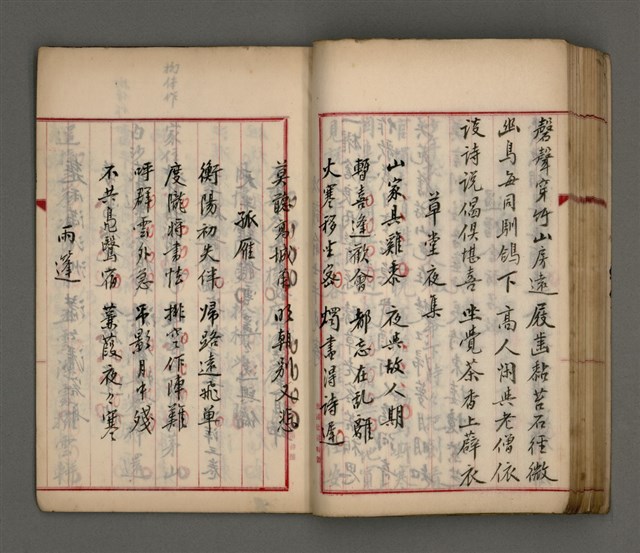 磬聲穿竹山房遠 屐齒黏苔石徑微
幽鳥每同馴鴿下 高人閑與老僧依
談詩說偈俱堪喜 坐覺茶香上薜衣
草堂夜集
山家具雞黍 夜與故人期
暫喜逢歡會 都忘在亂離
火寒移坐密 燭盡得詩遲
莫聽高城角 明朝別又悲
孤雁
衡陽初失伴 歸路遠飛單
度隴將書怯 排空作陣難
呼群雲外急 弔影月中殘
不共鳧鷖宿 蒹葭夜々寒
雨蓬